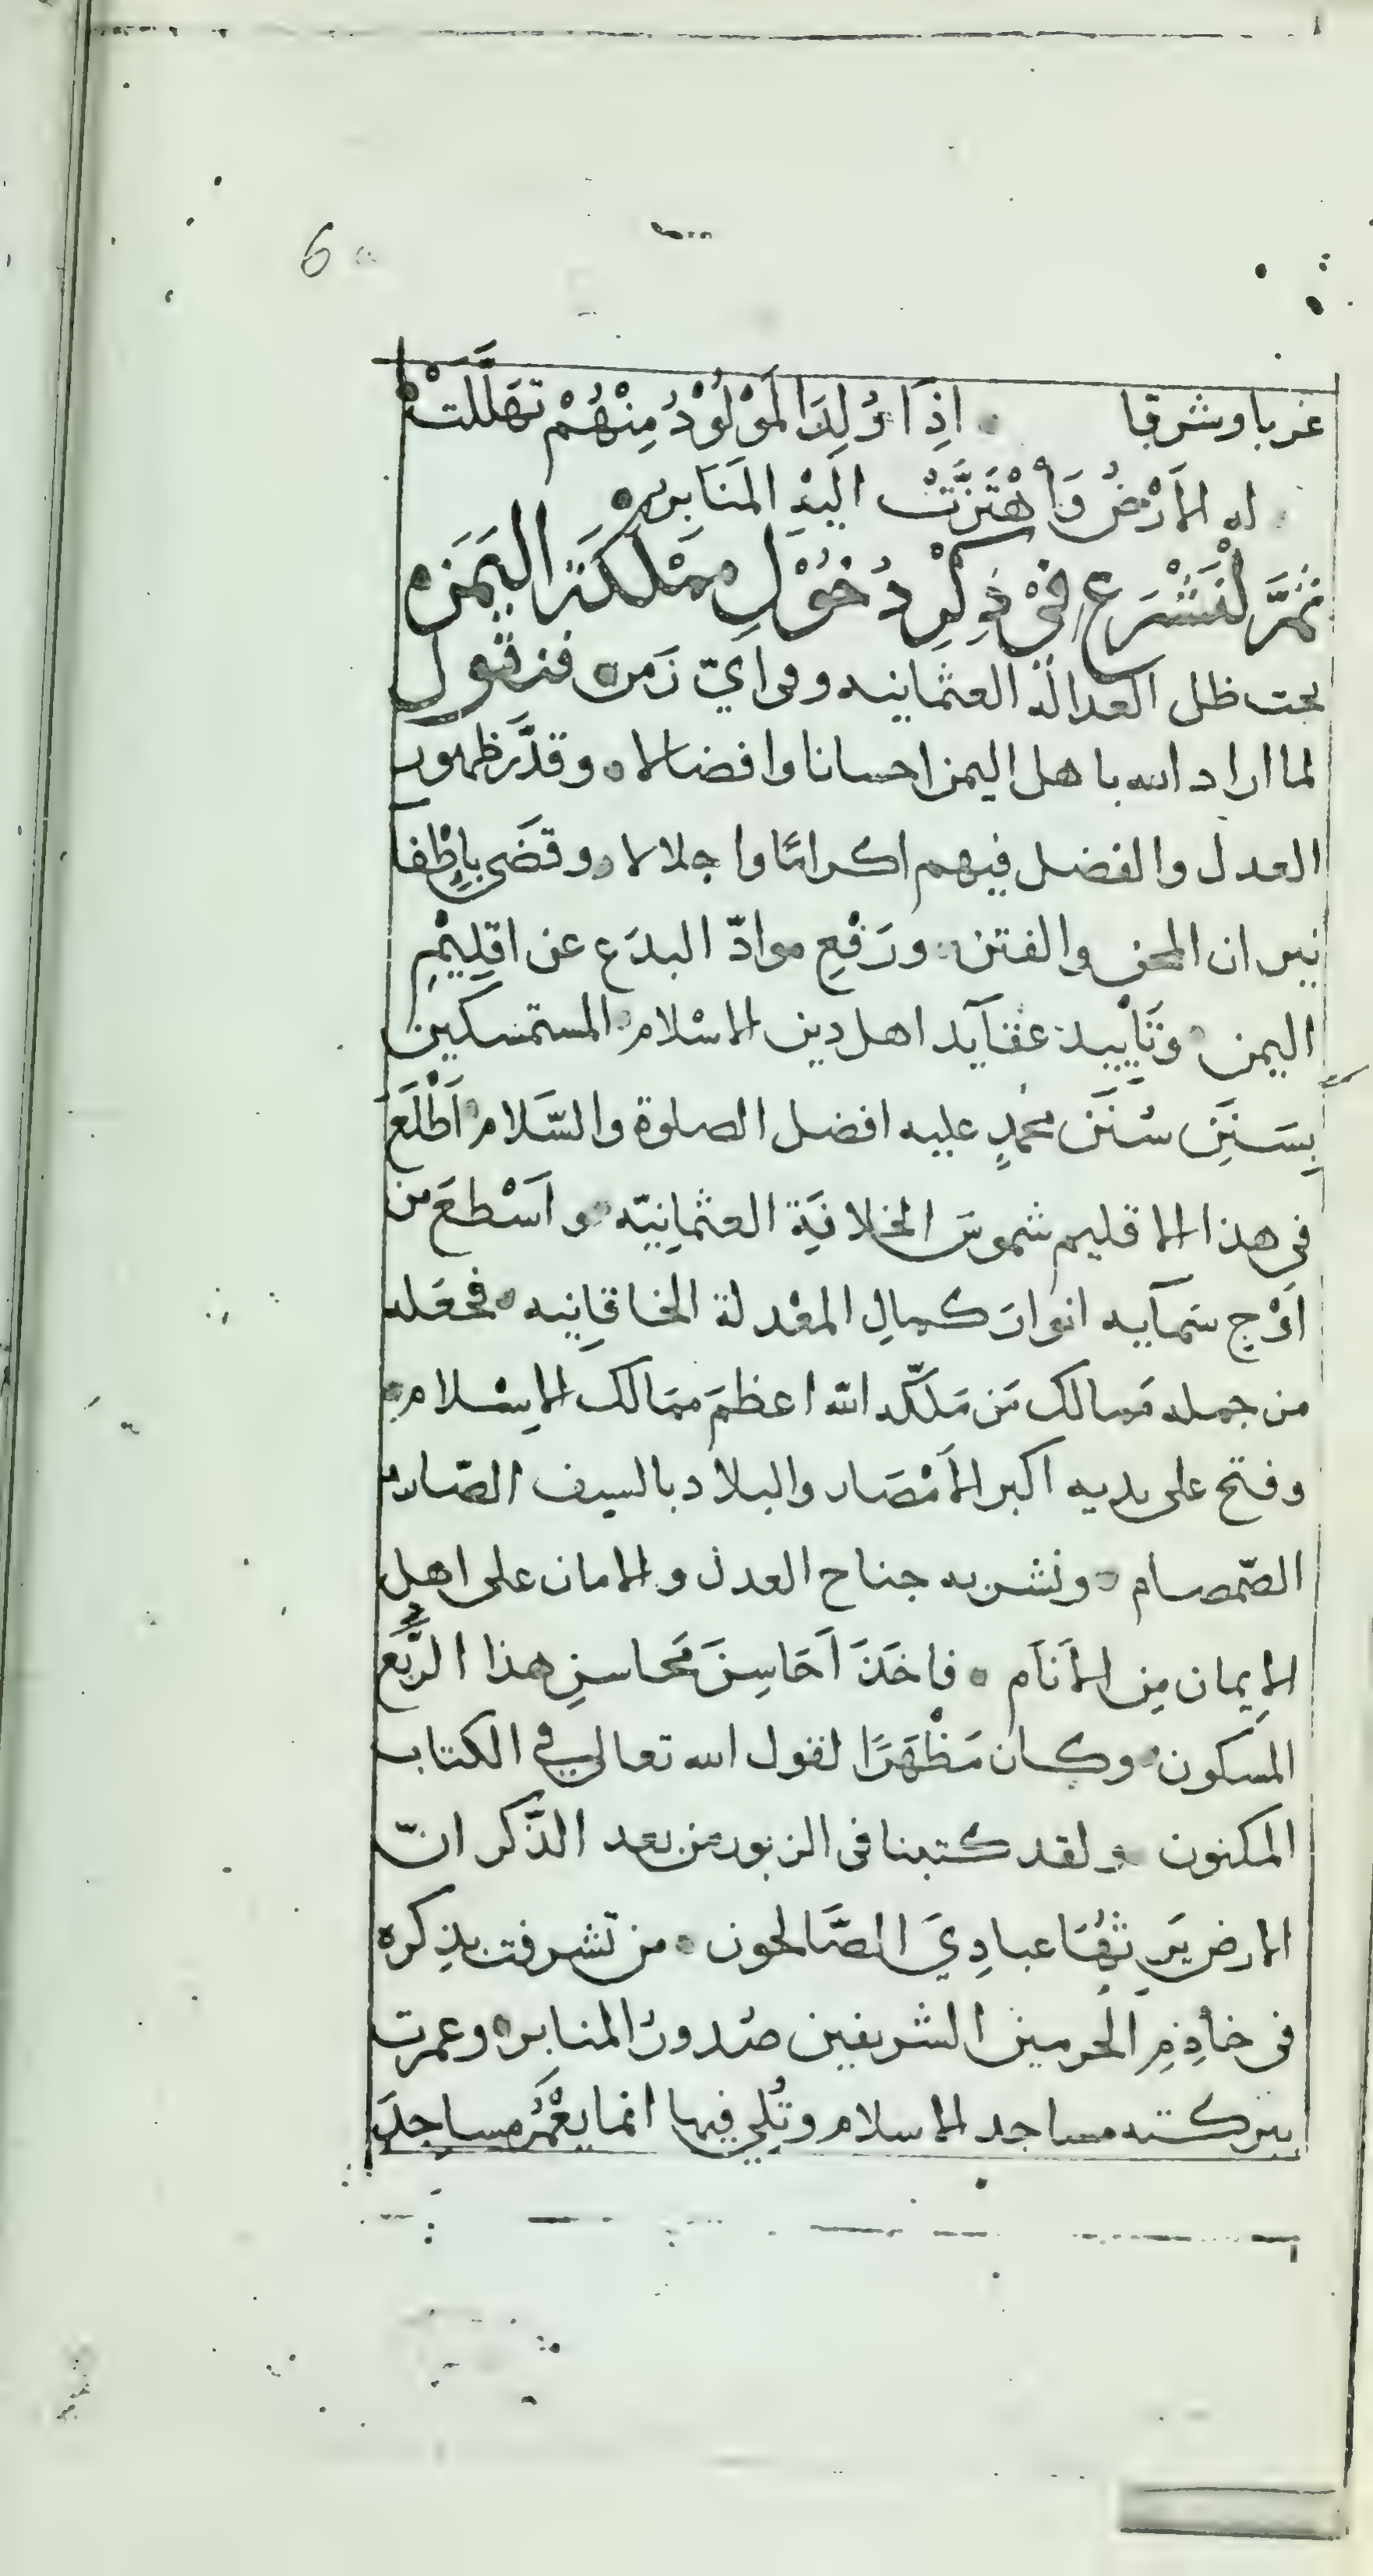 6
غربا وشرقا ۰ اِذَا وُلِدَ المَوْلُوْدُ مِنْهُمْ تهَلَّلَتْ
له الاَرْضُ وَاهْتَزَّتْ اليْهِ المَنَابِرُ ۰
ثمَّ لْنَشْرَع فىْ ذِكْرِ دُخُوْلِ ممْلَكَة اليَمَن ۰
تحت ظل العدالة العثمانيه وفى ايّ زَمن ۰ فنقول
لما اراد الله باهل اليمن احسانا وافضالا ۰ وقدَّر ظهور
العدل والفضل فيهم اكراما واجلالا ۰ وقضَى باِطْفا
نيران المحن والفتن ۰ ورَفْعِ موادّ البدَع عن اقلِيْمِ
اليمن ۰ وتَأْييد عقآيد اهل دين الاسْلام ۰ المستمسكين
بِسَنَنِ سُنَن محمدٍ عليه افضل الصلوة والسَّلام ۰ اَطْلَعَ
فى هذا الاقليم شموسَ الخلافَةِ العثمانِيّه ۰ واَسْطعَ من
اَوْجِ سمآيه انوارَ كمالِ المعْدلة الخاقانِيه ۰ فجعَله
من جمله مَمالك مَن مَلّكه الله اعظمَ ممَالك الاِسْلام ۰
وفتح على يديه اكبر الاَمْصَار والبلاد بالسيف الصّارم
الصّمصام ۰ ونشر به جناح العدل والامان على اهل
الاِيمان مِن الاَنَام ۰ فاخَذَ اَحَاسِنَ مَحاسنِ هذا الرُّبْع
المسكون ۰ وكان مَظْهَرًا لقول الله تعالى فى الكتاب
المكنون ۰ ولقد كتبنا فى الزبور من بعد الذّكر انّ
الارض يَرِثُهَا عبادِيَ الصَّالحون ۰ من تشرفت بذِكره
فى خادِمِ الحرمين الشريفين صُدورُ المنابر ۰ وعمرت
ببركته مساجد الاسلام وتُلِي فيها انما يعْمُرُ مساجدَ